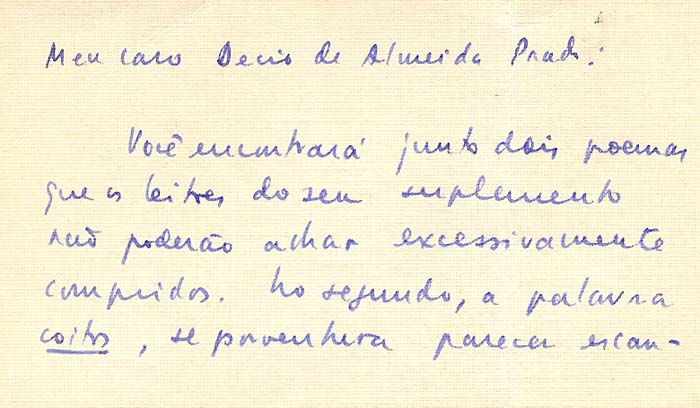 Meu caro Decio de Almeida Prado:
Você encontrará junto dois poemas
que os leitores do seu suplemento
não poderão achar excessivamente
compridos. No segundo, a palavra
coitos, se porventura parecer escan-